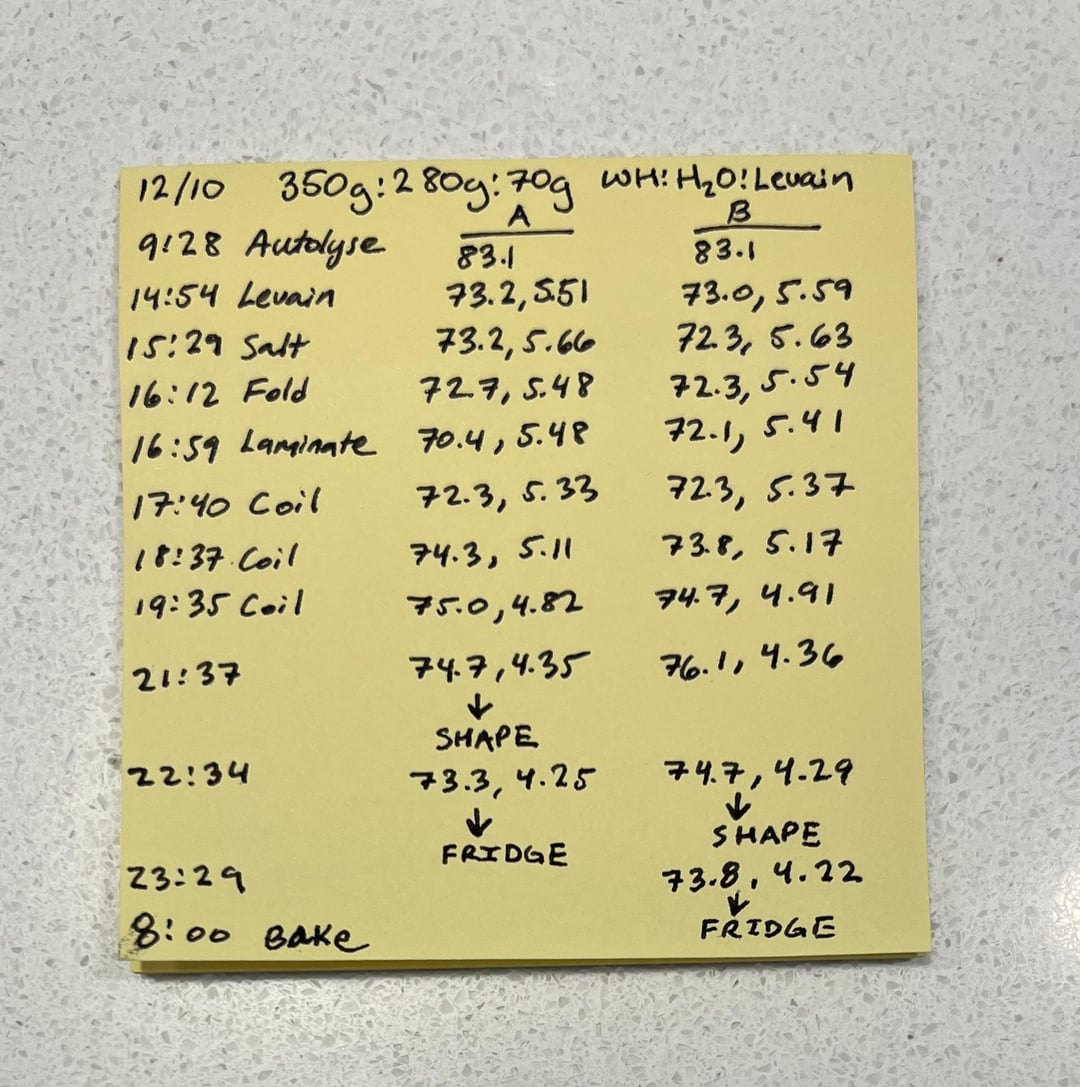 12/10 350g:280g:70g WH:H₂O:Levain
A B
9:28 Autolyse 83.1 83.1
14:54 Levain 73.2, 5.51 73.0, 5.59
15:29 Salt 73.2, 5.66 72.3, 5.63
16:12 Fold 72.7, 5.48 72.3, 5.54
16:59 Laminate 70.4, 5.48 72.1, 5.41
17:40 Coil 72.3, 5.33 72.3, 5.37
18:37 Coil 74.3, 5.11 73.8, 5.17
19:35 Coil 75.0, 4.82 74.7, 4.91
21:37 74.7, 4.35 76.1, 4.36
↓
SHAPE
22:34 73.3, 4.25 74.7, 4.29
↓ ↓
FRIDGE SHAPE
23:29 73.8, 4.22
↓
8:00 BAKe FRIDGE